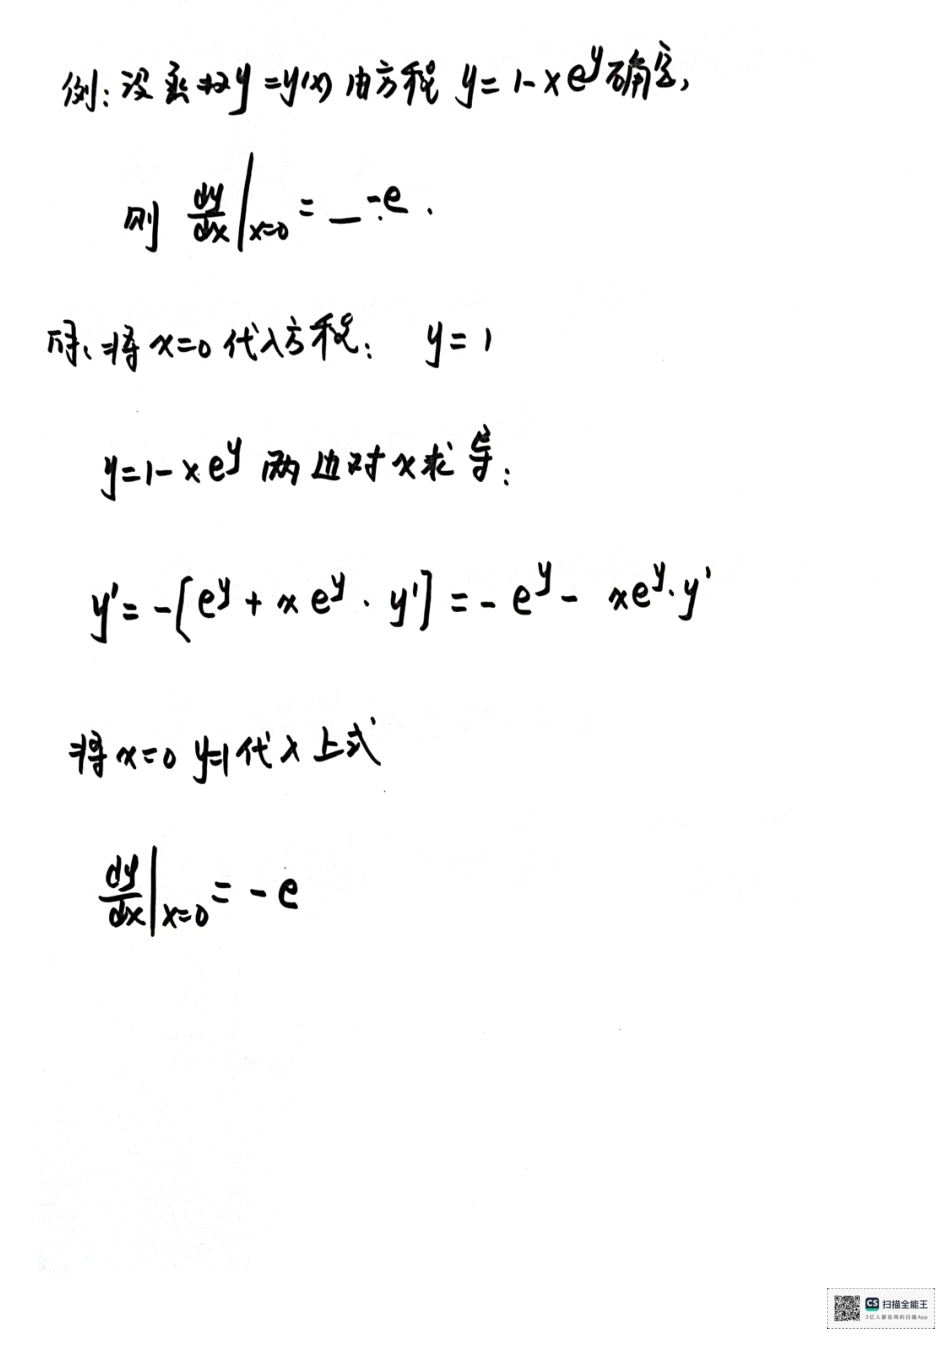 例:设函数y=y(x)由方程 y=1-xe^y确定,
则 dy/dx|x=0 = _-e.
解:将x=0代入方程: y=1
y=1-xe^y 两边对x求导:
y'=-[e^y+xe^y·y']=-e^y-xe^y·y'
将x=0 y=1代入上式
dy/dx|x=0=-e
CS 扫描全能王
3亿人都在用的扫描App